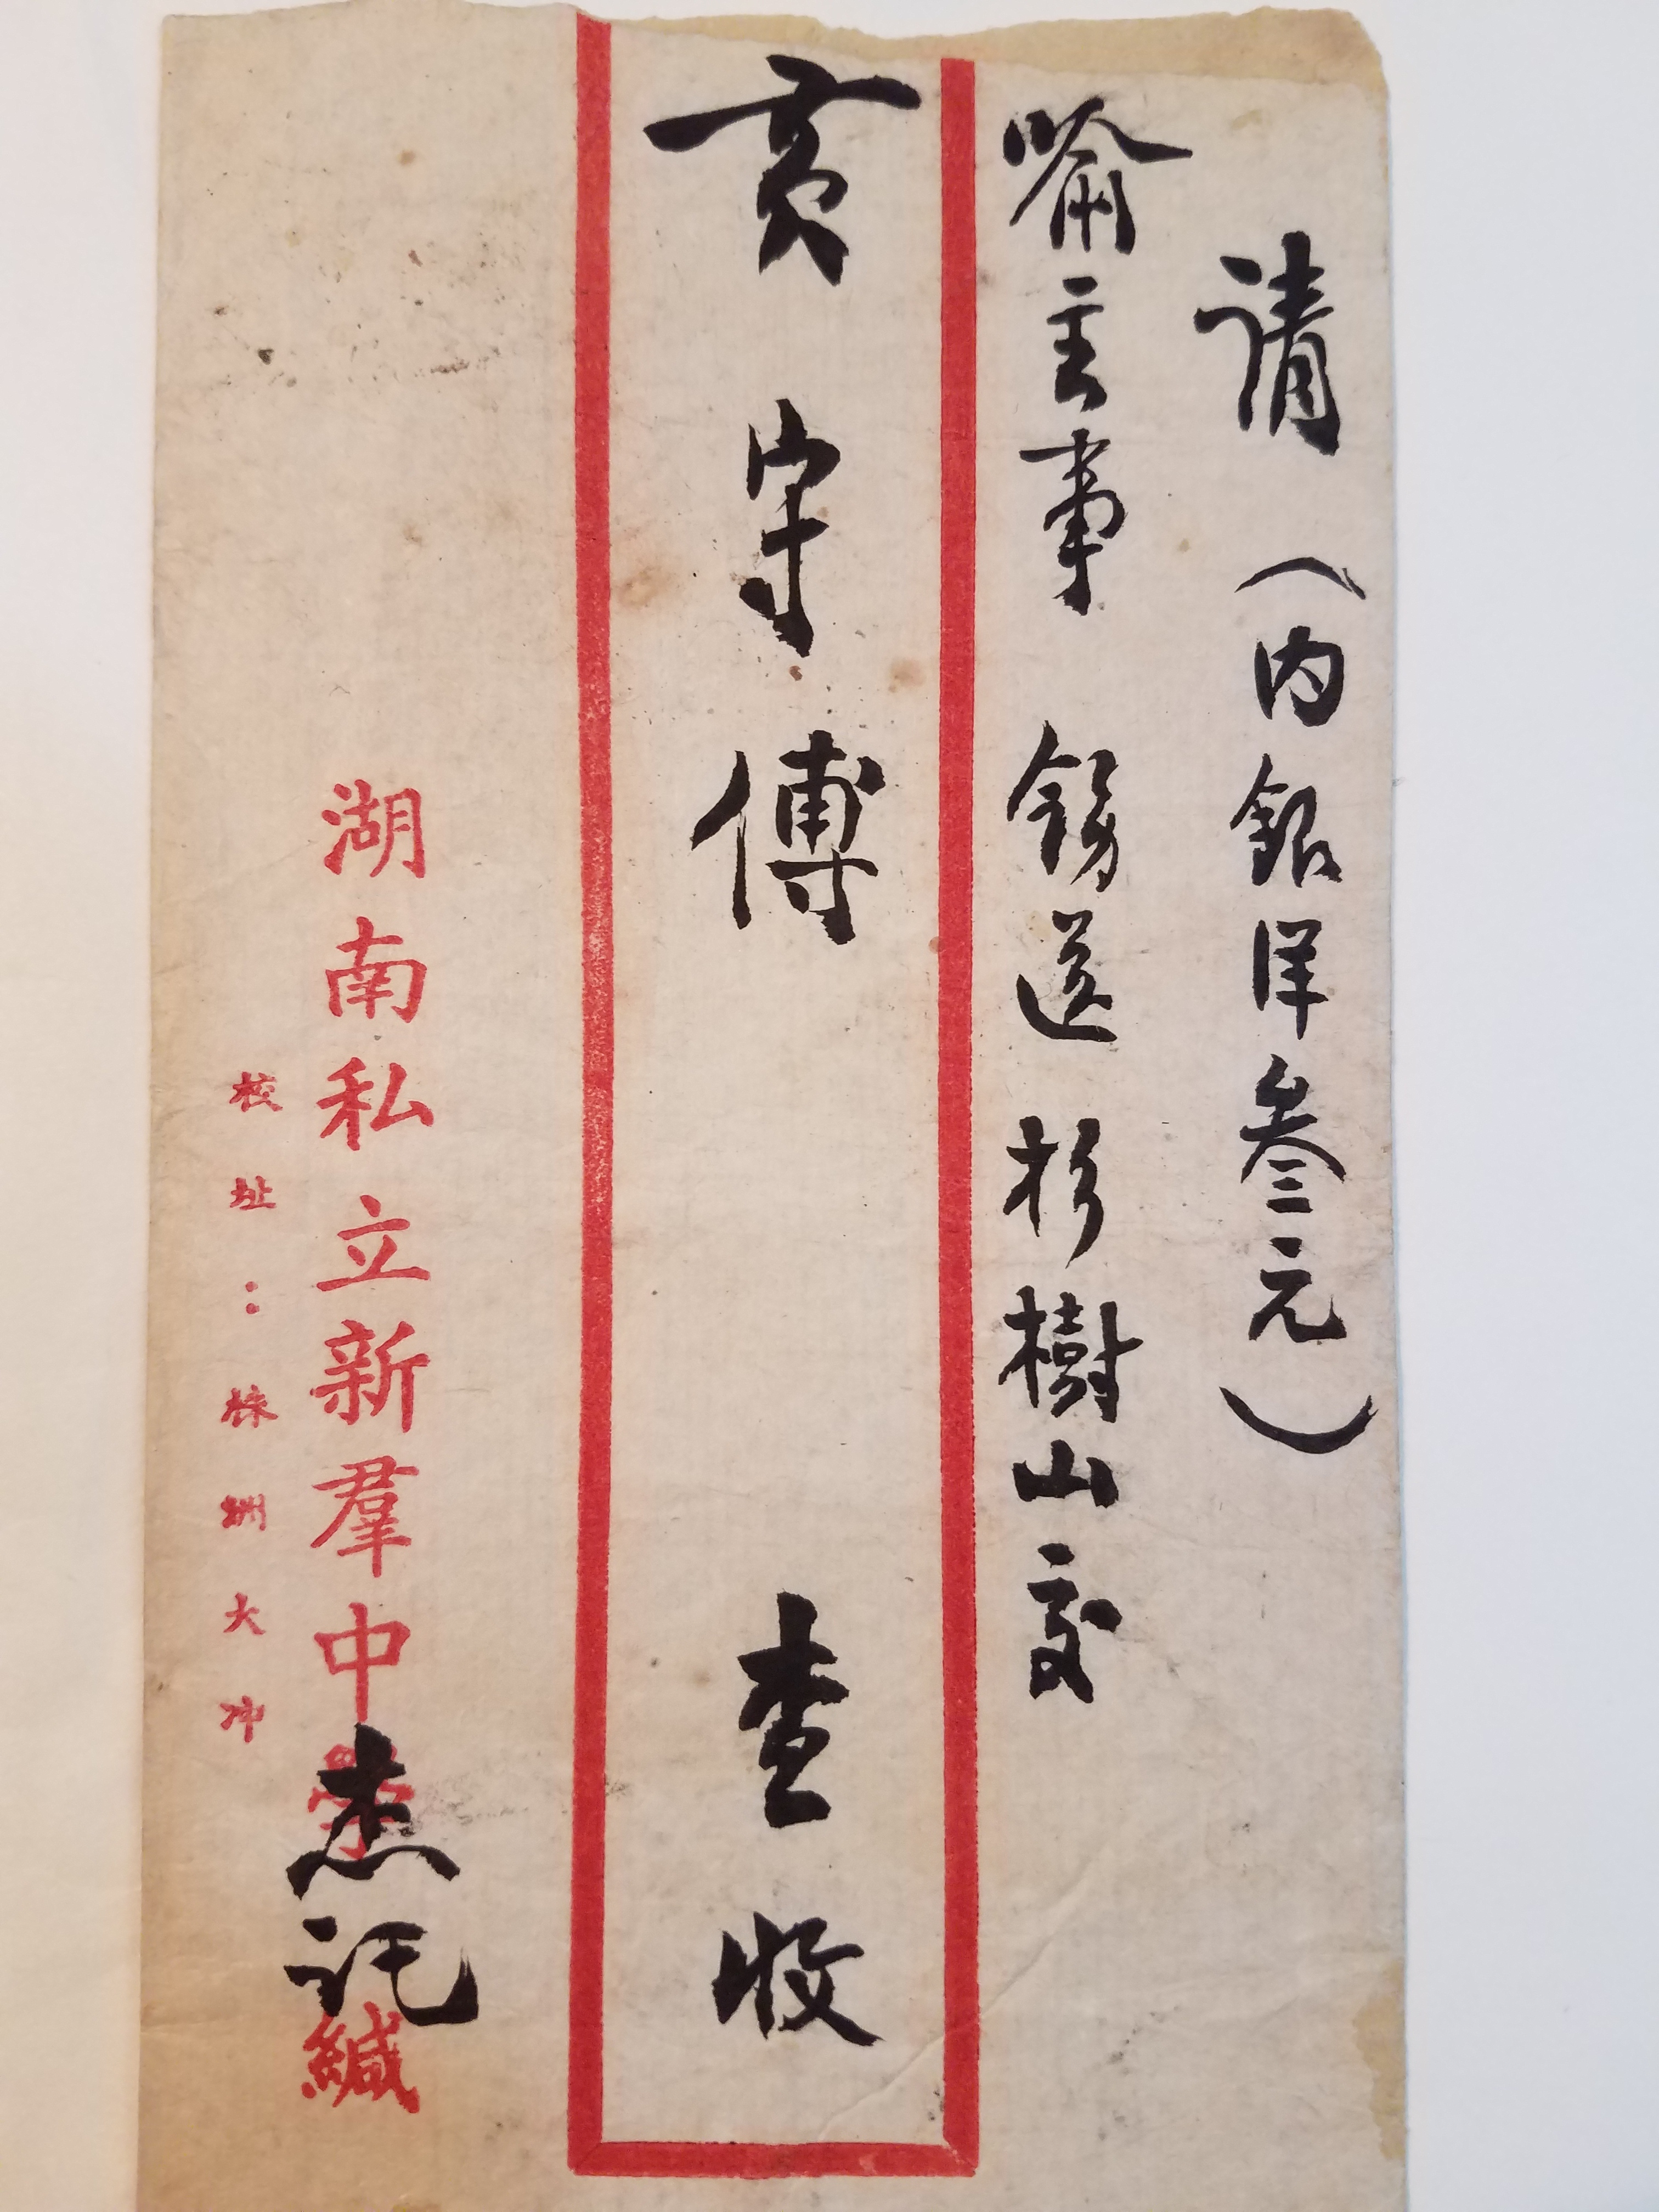 請（内銀洋叁元）
喻主事 飭送 杉樹山交
黃守傅 查收
湖南私立新羣中學 杰託 緘
校址：株洲大冲